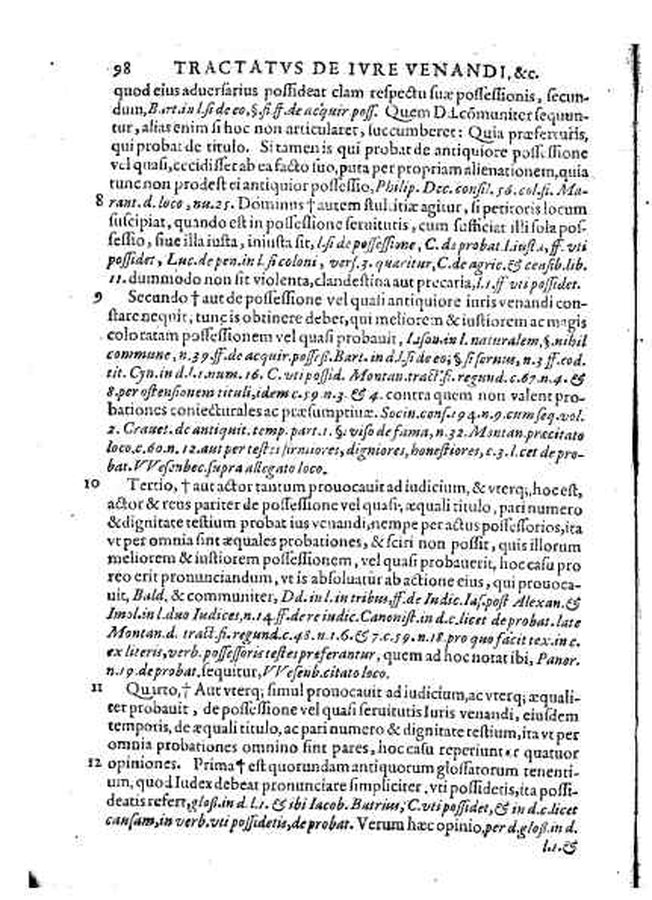 98 TRACTATVS DE IVRE VENANDI, &c.
quod eius aduersarius possideat clam respectu suæ possessionis, secun-
dum, Bart. in l. si de eo, §. si ff. de acquir poss. Quem Dd. cōmuniter sequun-
tur, alias enim si hoc non articularet, succumberet: Quia præfertur is,
qui probat de titulo. Si tamen is qui probat de antiquiore possessione
vel quasi, cecidisset ab ea facto suo, puta per propriam alienationem, quia
tunc non prodest ei antiquior possessio, Philip. Dec. consil. 56. col. fi. Ma-
8 rant. d. loco, nu. 25. Dominus † autem stultitiæ agitur, si petitoris locum
suscipiat, quando est in possessione seruitutis, cum sufficiat illi sola pos-
sessio, siue illa iusta, iniusta sit, l. si de possessione, C. de probat. l. iusta, ff. vti
possidet, Luc. de pen. in l. si coloni, vers. 3. quæritur, C. de agric. & censib. lib.
11. dummodo non sit violenta, clandestina aut precaria, l. 1. ff vti possidet.
9 Secundo † aut de possessione vel quasi antiquiore iuris venandi con-
stare nequit; tunc is obtinere debet, qui meliorem & iustiorem ac magis
coloratam possessionem vel quasi probauit, Iason. in l. naturalem, §. nihil
commune, n. 39. ff. de acquir. possess. Bart. in d. l. si de eo; § si seruus, n. 3 ff. eod.
tit. Cyn. in d. l. 1. num. 16. C. vti possid. Montan. tract. fi. regund. c. 67. n. 4. &
8. per ostensionem tituli, idem c. 59. n. 3. & 4. contra quem non valent pro-
bationes coniecturales ac præsumptiuæ. Socin. cons. 194. n. 9. cum seq. vol.
2. Crauet. de antiquit. temp. part. 1. §. viso de fama, n. 32. Montan. præcitato
loco. c. 60. n. 12. aut per testes firmiores, digniores, honestiores, c. 3. licet de pro-
bat. VVesenbec. supra allegato loco.
10 Tertio, † aut actor tantum prouocauit ad iudicium, & vterq;, hoc est,
actor & reus pariter de possessione vel quasi, æquali titulo, pari numero
& dignitate testium probat ius venandi, nempe per actus possessorios, ita
vt per omnia sint æquales probationes, & sciri non possit, quis illorum
meliorem & iustiorem possessionem, vel quasi probauerit, hoc casu pro
reo erit pronunciandum, vt is absoluatur ab actione eius, qui prouoca-
uit, Bald. & communiter, Dd. in l. in tribus, ff. de Iudic. Ias. post Alexan. &
Imol. in l. duo Iudices, n. 14. ff. de re iudic. Canonist. in d. c. licet de probat. late
Montan. d. tract. fi. regund. c. 48. n. 1. 6. & 7. c. 59. n. 18. pro quo facit tex. in c.
ex literis, verb. possessoris testes preferantur, quem ad hoc notat ibi, Panor.
n. 19. de probat. sequitur, VVesenb. citato loco.
11 Quarto, † Aut vterq; simul prouocauit ad iudicium, ac vterq; æquali-
ter probauit, de possessione vel quasi seruitutis Iuris venandi, eiusdem
temporis, de æquali titulo, ac pari numero & dignitate testium, ita vt per
omnia probationes omnino sint pares, hoc casu reperiuntur quatuor
12 opiniones. Prima † est quorundam antiquorum glossatorum tenenti-
um, quod Iudex debeat pronunciare simpliciter. vti possidetis, ita possi-
deatis refert, gloß. in d. l. 1. & ibi Iacob. Butrius, C. vti possidet, & in d. c. licet
causam, in verb. vti possidetis, de probat. Verum hæc opinio, per d. gloß. in d.
l. 1. &